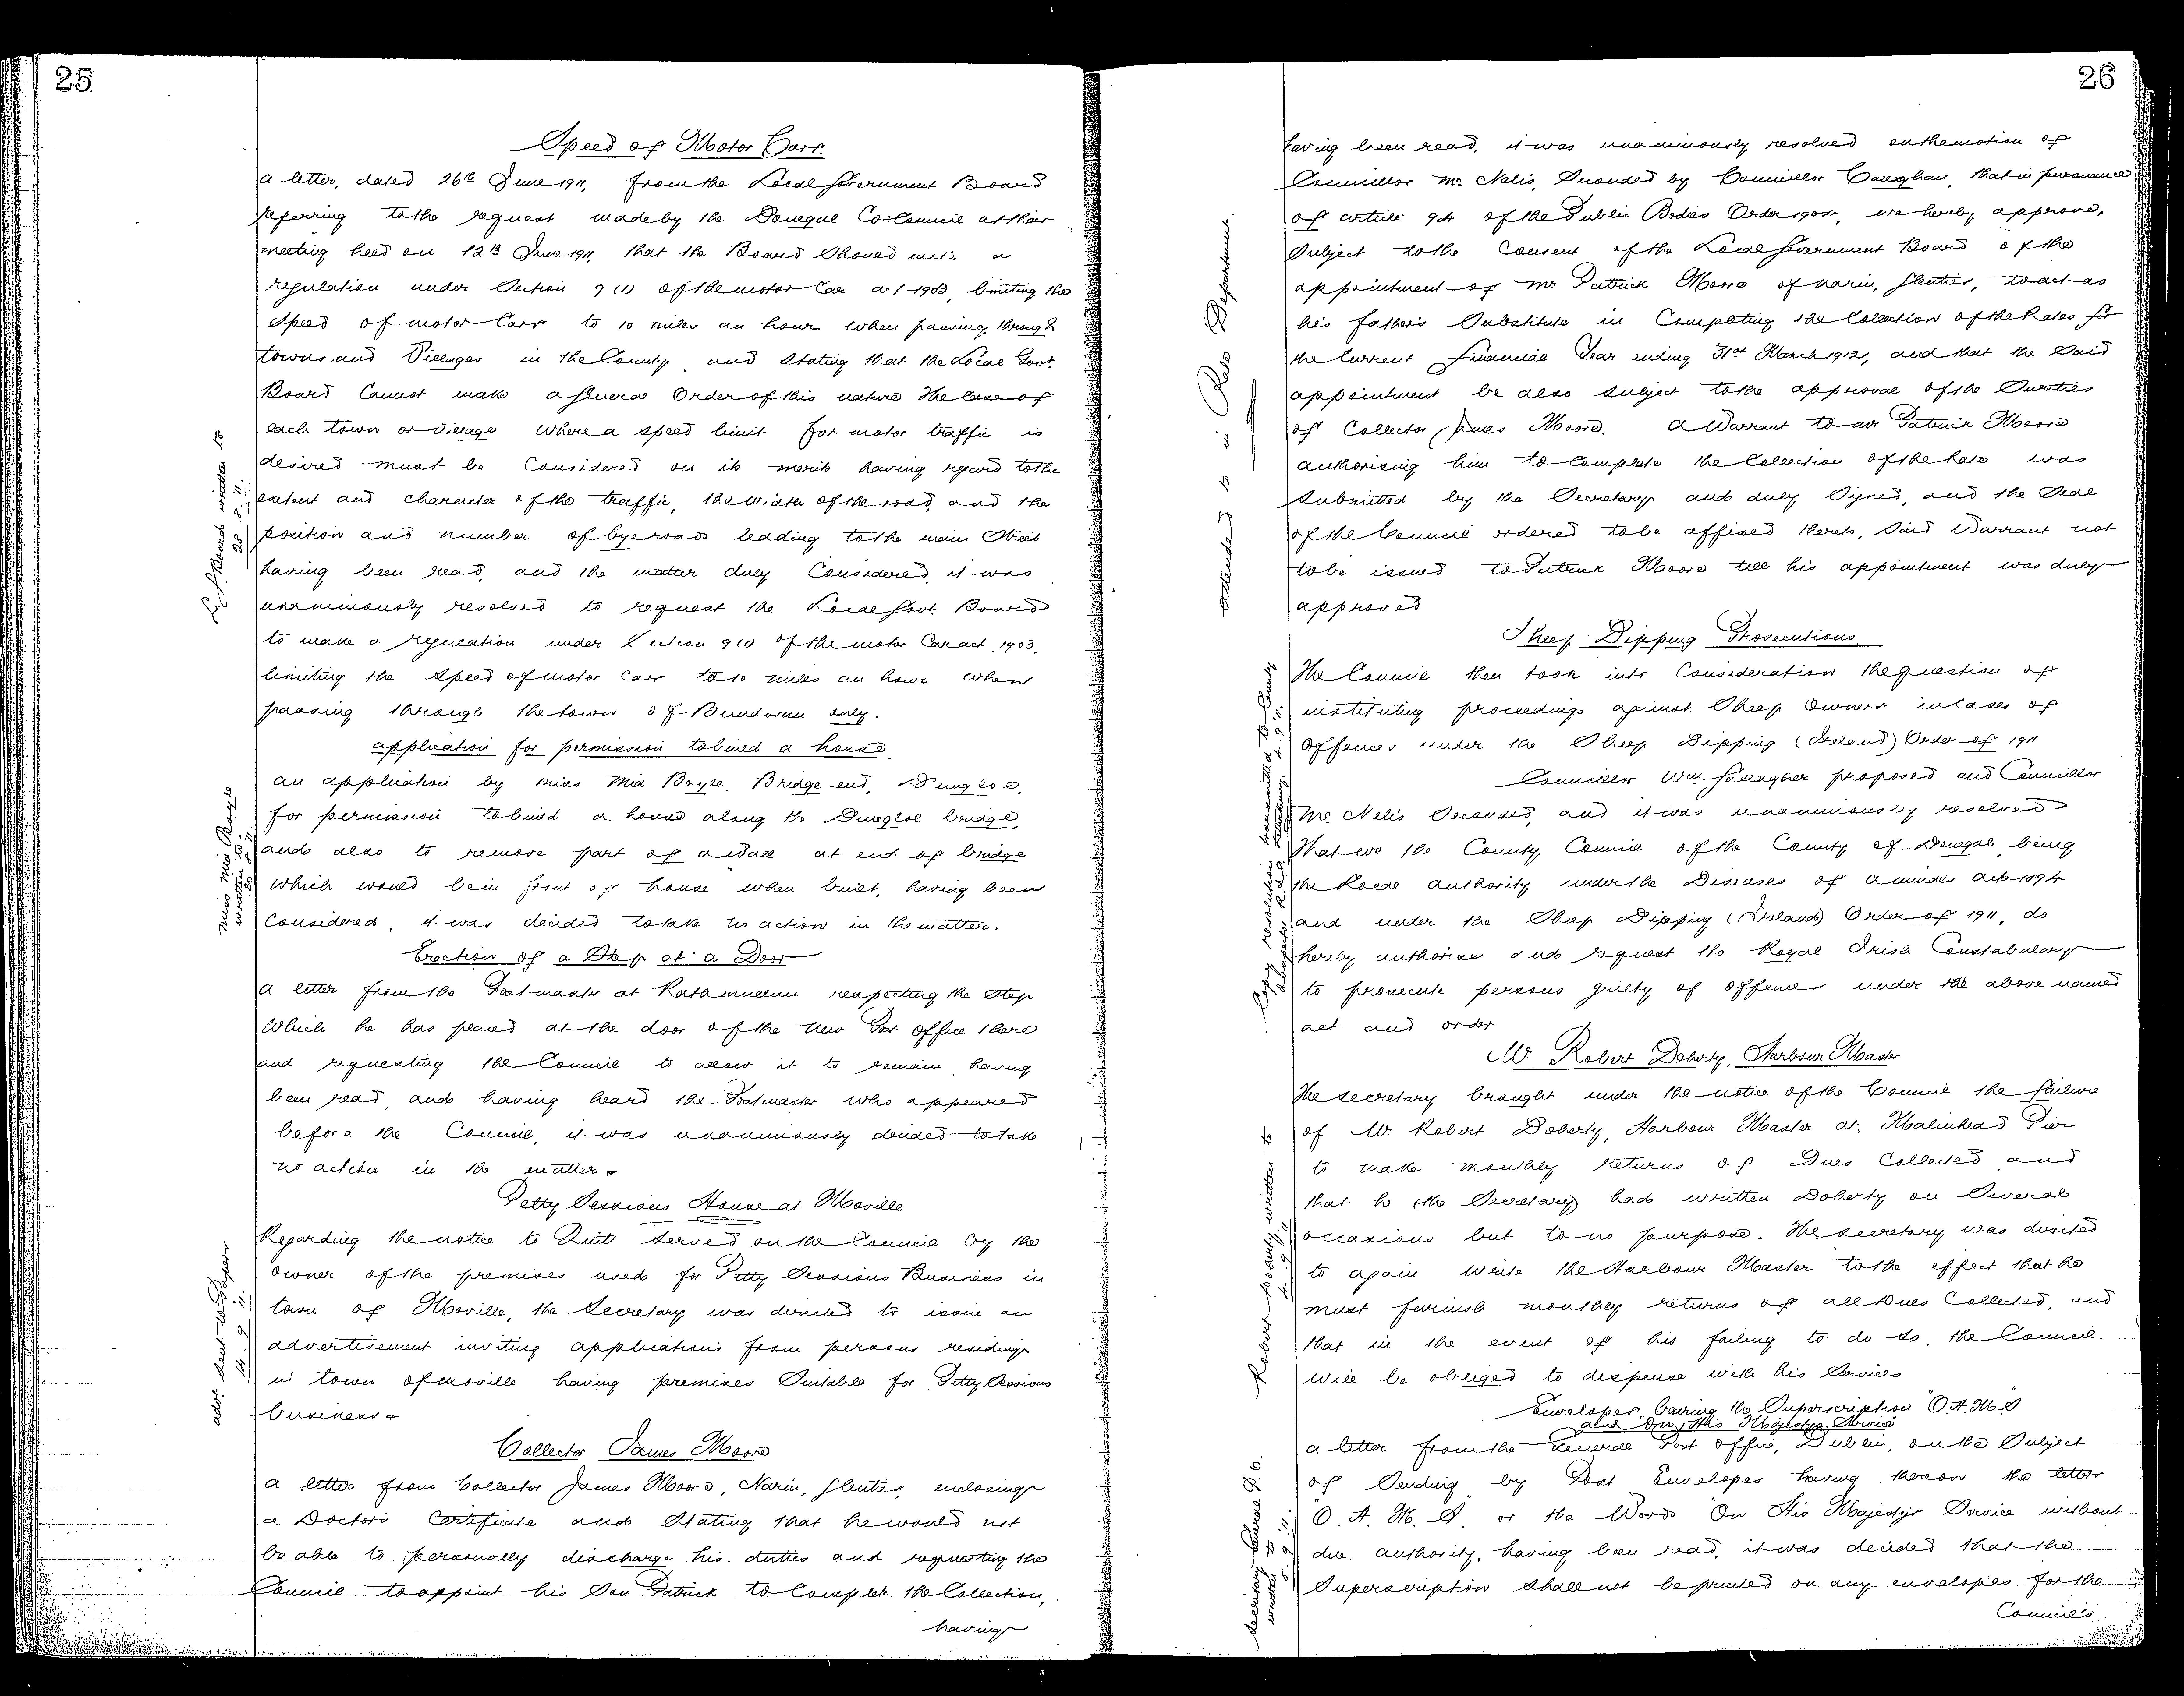 25
Speed of Motor Cars.
a letter, dated 26th June 1911, from the Local Government Board
referring to the request made by the Donegal Co. Council at their
meeting held on 12th June 1911, that the Board Should make a
regulation under Section 9 (1) of the motor Car act 1903, limiting the
Speed of motor Cars to 10 miles an hour when passing through
towns and Villages in the County, and Stating that the Local Govt.
Board Cannot make a General Order of this nature The case of
each town or village where a speed limit for motor traffic is
desired must be Considered on its merits having regard to the
extent and character of the traffic, the width of the road, and the
position and number of bye roads leading to the main Street
having been read, and the matter duly Considered, it was
unanimously resolved to request the Local Govt. Board
to make a regulation under Section 9 (1) of the motor Car act 1903,
limiting the Speed of motor Cars to 10 miles an hour when
passing through the town of Bundoran only.
L. G. Board written to
application for permission to build a house
an application by Miss Mia Boyle, Bridge-end, Dungloe,
for permission to build a house along the Dungloe bridge,
and also to remove part of a wall at end of bridge
which would be in front of house when built, having been
Considered, it was decided to take no action in the matter.
miss Mia Boyle
written to
Erection of a Step at a Door
a letter from the Postmaster at Rathmullan respecting the Step
which he has placed at the door of the new Post office there
and requesting the Council to allow it to remain having
been read, and having heard the Postmaster who appeared
before the Council, it was unanimously decided to take
no action in the matter.
Petty Sessions House at Moville
Regarding the notice to Quit served on the Council by the
owner of the premises used for Petty Sessions Business in
town of Moville, the Secretary was directed to issue an
advertisement inviting applications from persons residing
in town of moville having premises Suitable for Petty Sessions
business.
advt. sent to Papers
Collector James Moore
a letter from Collector James Moore, Narin, Glenties, enclosing
a Doctor's Certificate and Stating that he would not
be able to personally discharge his duties and requesting the
Council to appoint his Son Patrick to Complete the Collection,
having
26
having been read, it was unanimously resolved on the motion of
Councillor Mc. Nelis, Seconded by Councillor Vaughan, that in pursuance
of article 94 of the Public Bodies Order 1904, we hereby approve,
Subject to the Consent of the Local Government Board of the
appointment of Mr. Patrick Moore of Narin, Glenties, to act as
his father's Substitute in Completing the Collection of the Rates for
the Current Financial Year ending 31st March 1912, and that the Said
appointment be also Subject to the approval of the Sureties
of Collector James Moore. A Warrant to Mr Patrick Moore
authorising him to Complete the Collection of the Rate was
Submitted by the Secretary and duly Signed, and the Seal
of the Council ordered to be affixed thereto, Said Warrant not
to be issued to Patrick Moore till his appointment was duly
approved
attended to in Rate Department.
Sheep Dipping Prosecutions.
The Council then took into Consideration the question of
instituting proceedings against Sheep Owners in Cases of
Offences under the Sheep Dipping (Ireland) Order of 1911
Councillor Wm. Gallagher proposed and Councillor
Mc. Nelis Seconded, and it was unanimously resolved
That we the County Council of the County of Donegal being
the Local authority under the Diseases of animals act 1894
and under the Sheep Dipping (Ireland) Order of 1911, do
hereby authorise and request the Royal Irish Constabulary
to prosecute persons guilty of offences under the above named
act and order
Copy resolution transmitted to County
Mr. Robert Doherty, Harbour Master
The Secretary brought under the notice of the Council the failure
of Mr. Robert Doherty, Harbour Master at Malinhead Pier
to make monthly returns of Dues Collected and
that he (the Secretary) had written Doherty on Several
occasions but to no purpose. The Secretary was directed
to again write the Harbour Master to the effect that he
must furnish monthly returns of all Dues Collected, and
that in the event of his failing to do so, the Council
will be obliged to dispense with his Services
Robert Doherty written to
4. 9. 11.
Envelopes bearing the Superscription "O.H.M.S
and "On His Majestys Service"
a letter from the General Post office, Dublin, on the Subject
of Sending by Post Envelopes having thereon the letters
"O. H. M. S. or the Words "On His Majestys Service without
due authority, having been read, it was decided that the
Superscription shall not be printed on any envelopes for the
Council's
Secretary General P.O.
written to